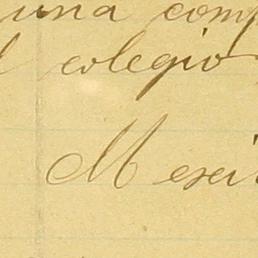 una comp
l colegio
Mexi